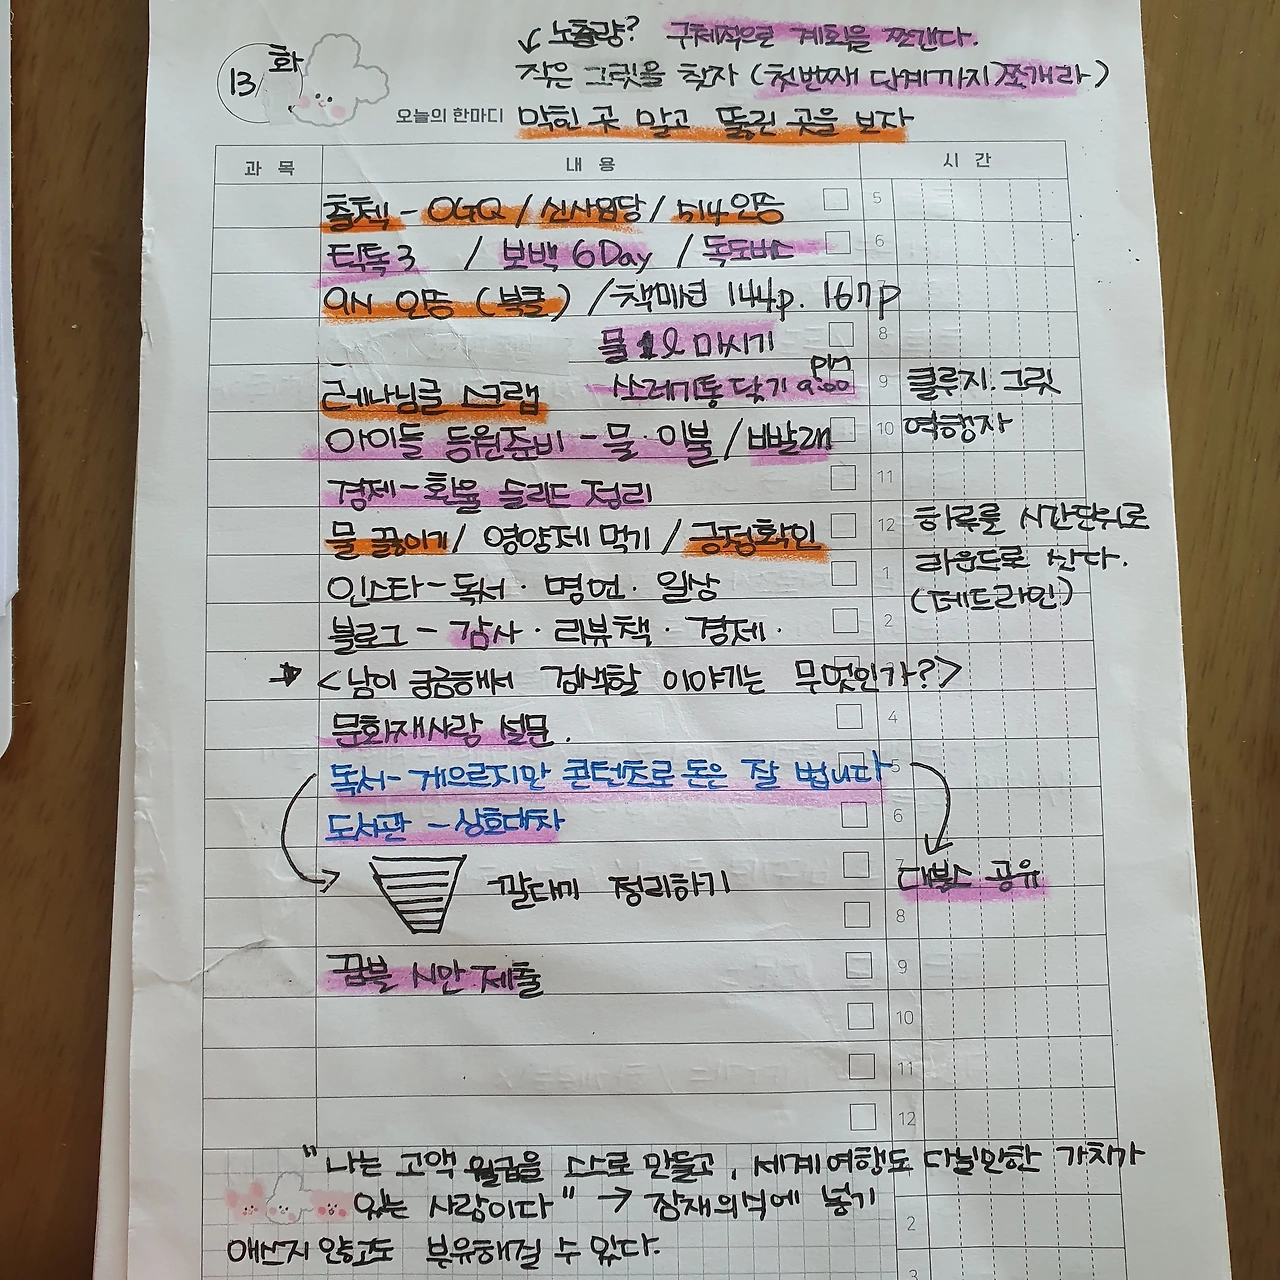 ↙ 노출량? 구체적으로 계획을 쪼갠다.
13/ 화
작은 그릿을 찾자 (첫번째 단계까지 쪼개라)
오늘의 한마디 막힌 곳 말고 뚫린 곳을 보자
과 목 내 용 시 간
출첵 - OGQ / 신사임당 / 514 인증 5
틱톡3 / 보백 6Day / 독도버스 6
9시 인증 (북클) / 책미션 144p. 167p
물 1l 마시기 8
pm
레나님글 스크랩 쓰레기통 닦기 9:00 9 클루지. 그릿
아이들 등원준비 - 물. 이불 / 빠빨래 10 역행자
경제 - 환율 슬리드 정리 11
물 끓이기 / 영양제 먹기 / 긍정확인 12 하루를 시간단위로
인스타 - 독서 · 명언 · 일상 1 라운드로 산다.
블로그 - 감사 · 리뷰책 · 경제 · 2 (데드라인)
→ <남이 궁금해서 검색할 이야기는 무엇인가?>
문화재사랑 설문. 4
독서 - 게으르지만 콘텐츠로 돈은 잘 법니다 5
도서관 - 상호대차 6
깔대기 정리하기 7 대북스 공유
8
꿈블 시안 제출 9
10
11
12
"나는 고액 월급을 스스로 만들고, 세계여행도 다닐만한 가치가
있는 사람이다" → 잠재의식에 넣기
애쓰지 않고도 부유해질 수 있다.
2
3